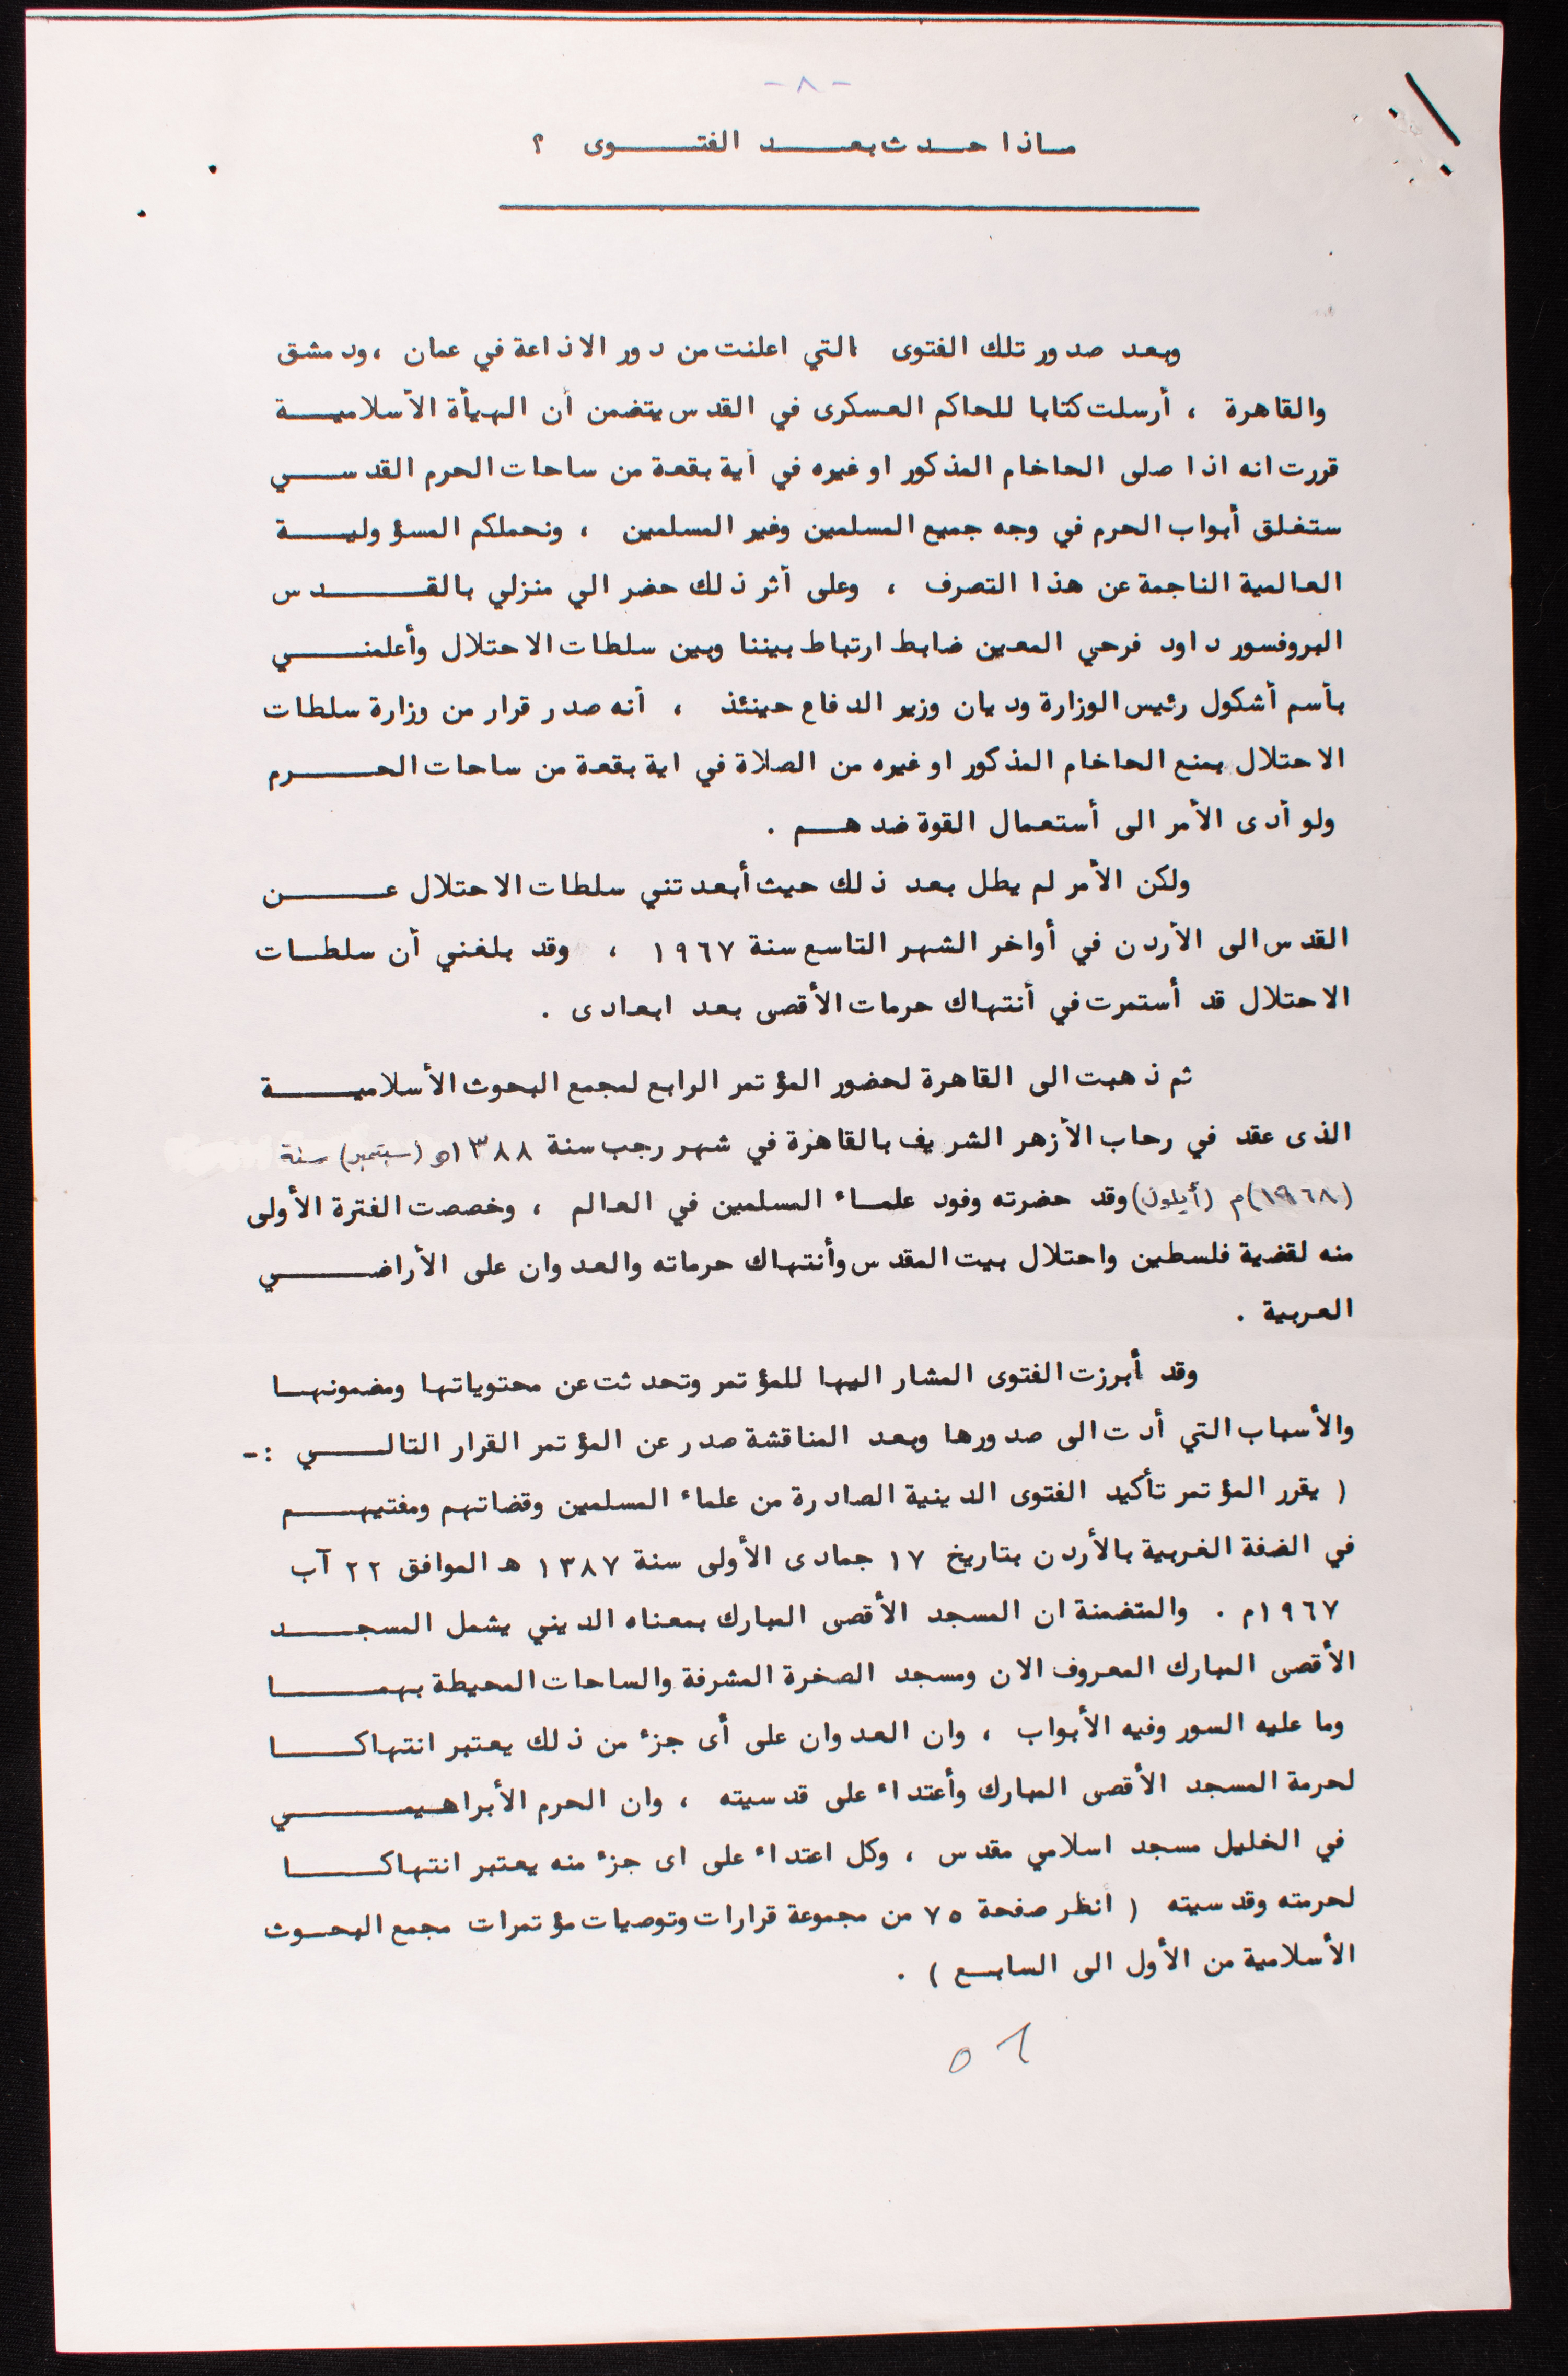 - ٨ -
ماذا حدث بعد الفتوى ؟
وبعد صدور تلك الفتوى التي اعلنت من دور الاذاعة في عمان ، ودمشق
والقاهرة ، أرسلت كتابا للحاكم العسكرى في القدس يتضمن أن الهيأة الأسلامية
قررت انه اذا صلى الحاخام المذكور او غيره في أية بقعة من ساحات الحرم القدسي
ستغلق أبواب الحرم في وجه جميع المسلمين وغير المسلمين ، ونحملكم المسؤولية
العالمية الناجمة عن هذا التصرف ، وعلى أثر ذلك حضر الي منزلي بالقدس
البروفسور داود فرحي المعين ضابط ارتباط بيننا وبين سلطات الاحتلال وأعلمني
بأسم أشكول رئيس الوزارة وديان وزير الدفاع حينئذ ، أنه صدر قرار من وزارة سلطات
الاحتلال بمنع الحاخام المذكور او غيره من الصلاة في اية بقعة من ساحات الحرم
ولو أدى الأمر الى أستعمال القوة ضدهم .
ولكن الأمر لم يطل بعد ذلك حيث أبعدتني سلطات الاحتلال عن
القدس الى الأردن في أواخر الشهر التاسع سنة ١٩٦٧ ، وقد بلغني أن سلطات
الاحتلال قد أستمرت في أنتهاك حرمات الأقصى بعد ابعادى .
ثم ذهبت الى القاهرة لحضور المؤتمر الرابع لمجمع البحوث الأسلامية
الذى عقد في رحاب الأزهر الشريف بالقاهرة في شهر رجب سنة ١٣٨٨ه (سبتمبر) سنة
(١٩٦٨)م (أيلول) وقد حضرته وفود علماء المسلمين في العالم ، وخصصت الفترة الأولى
منه لقضية فلسطين واحتلال بيت المقدس وأنتهاك حرماته والعدوان على الأراضي
العربية .
وقد أبرزت الفتوى المشار اليها للمؤتمر وتحدثت عن محتوياتها ومضمونها
والأسباب التي أدت الى صدورها وبعد المناقشة صدر عن المؤتمر القرار التالي :-
( يقرر المؤتمر تأكيد الفتوى الدينية الصادرة من علماء المسلمين وقضاتهم ومفتيهم
في الضفة الغربية بالأردن بتاريخ ١٧ جمادى الأولى سنة ١٣٨٧ هـ الموافق ٢٢ آب
١٩٦٧م . والمتضمنة ان المسجد الأقصى المبارك بمعناه الديني يشمل المسجد
الأقصى المبارك المعروف الان ومسجد الصخرة المشرفة والساحات المحيطة بهما
وما عليه السور وفيه الأبواب ، وان العدوان على أى جزء من ذلك يعتبر انتهاكا
لحرمة المسجد الأقصى المبارك وأعتداء على قدسيته ، وان الحرم الأبراهيمي
في الخليل مسجد اسلامي مقدس ، وكل اعتداء على اى جزء منه يعتبر انتهاكا
لحرمته وقدسيته ( أنظر صفحة ٧٥ من مجموعة قرارات وتوصيات مؤتمرات مجمع البحوث
الأسلامية من الأول الى السابع ) .
٥٦